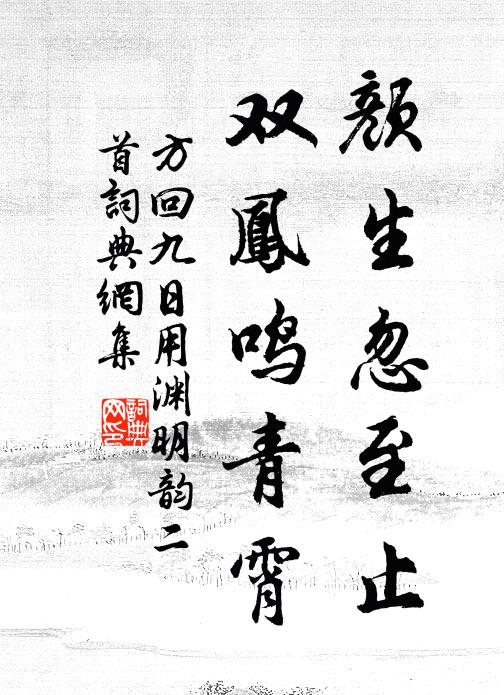 颜生忽至止
双鳳鸣青霄
方回九日用渊明韵二
首詞典網集
詞典
网印